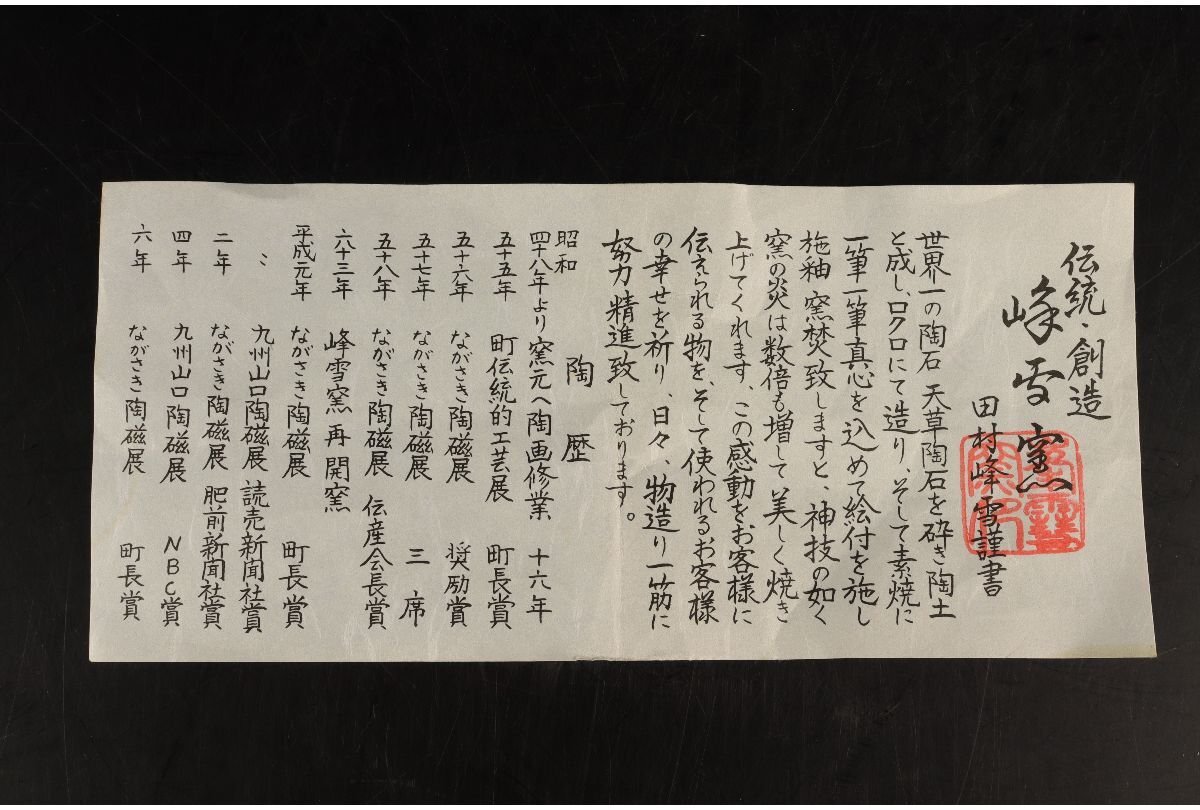 伝統・創造
峰雪窯
田村峰雪謹書
世界一の陶石 天草陶石を砕き陶土
と成し、ロクロにて造り、そして素焼に
一筆一筆真心を込めて絵付を施し
施釉 窯焚致しますと、神技の如く
窯の炎は数倍も増して美しく焼き
上げてくれます、この感動をお客様に
伝えられる物を、そして使われるお客様
の幸せを祈り、日々、物造り一筋に
努力精進致しております。
陶歴
昭和
四十八年より窯元へ陶画修業 十六年
五十五年 町伝統的工芸展 町長賞
五十六年 ながさき陶磁展 奨励賞
五十七年 ながさき陶磁展 三席
五十八年 ながさき陶磁展 伝産会長賞
六十三年 峰雪窯再開窯
平成元年 ながさき陶磁展 町長賞
〃 九州山口陶磁展 読売新聞社賞
二年 ながさき陶磁展 肥前新聞社賞
四年 九州山口陶磁展 NBC賞
六年 ながさき陶磁展 町長賞